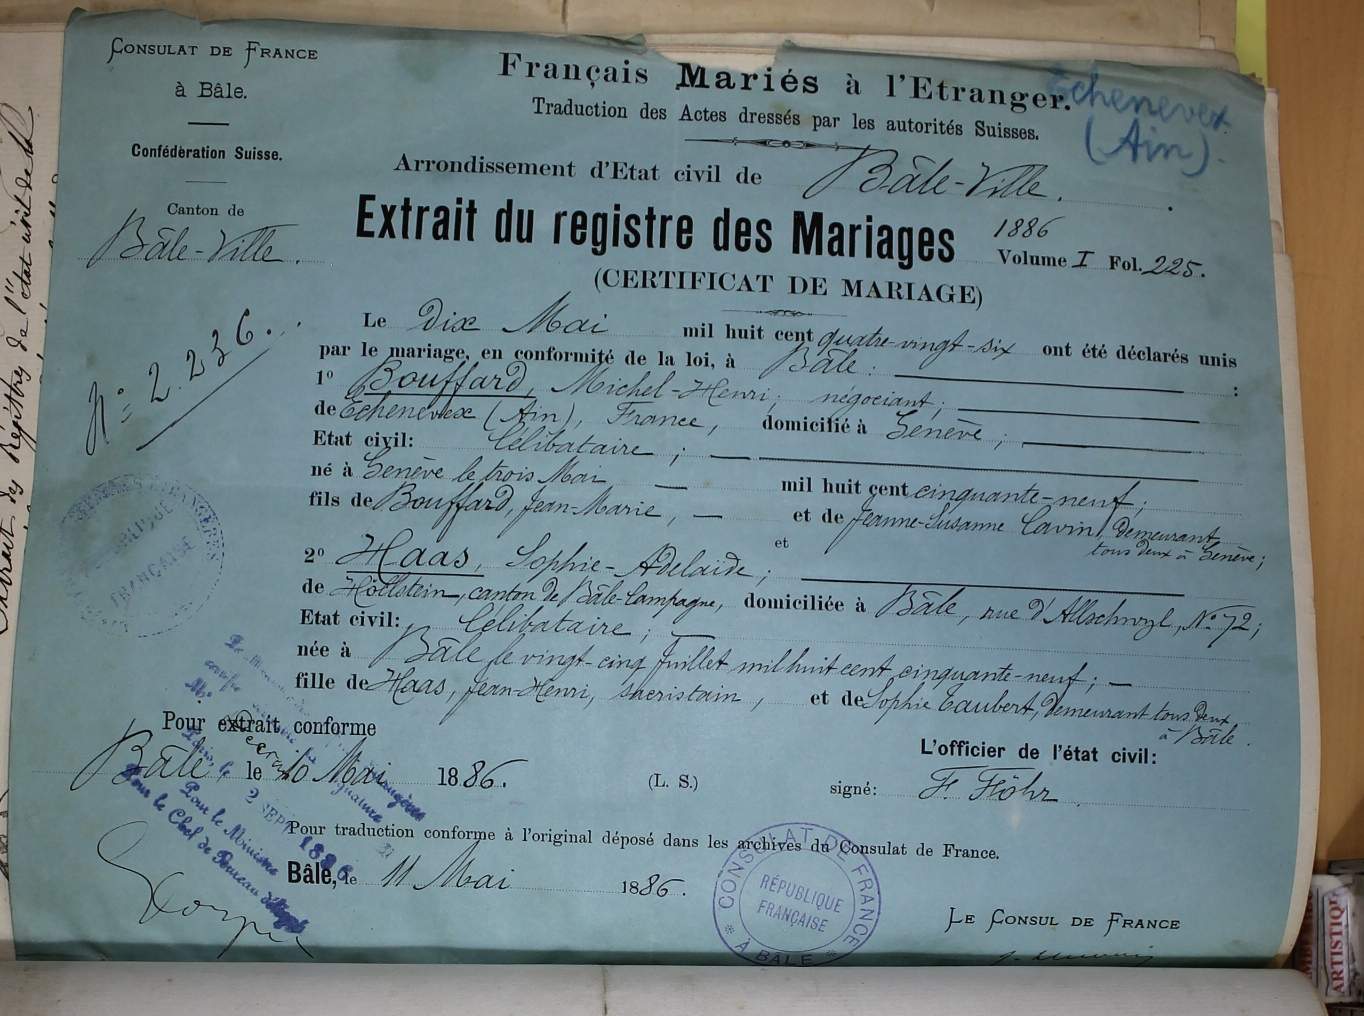 Consulat de France
à Bâle.
Confédération Suisse.
Canton de
Bâle-Ville.
N° 2.236.
Français Mariés à l'Etranger.
Echenevex
(Ain).
Traduction des Actes dressés par les autorités Suisses.
Arrondissement d'Etat civil de Bâle-Ville.
Extrait du registre des Mariages
1886
Volume I Fol. 225.
(CERTIFICAT DE MARIAGE)
Le Dix Mai mil huit cent quatre-vingt-six ont été déclarés unis
par le mariage, en conformité de la loi, à Bâle:
1° Bouffard, Michel-Henri, négociant;
de Echenevex (Ain), France, domicilié à Genève;
Etat civil: Célibataire;
né à Genève le trois Mai mil huit cent cinquante-neuf;
fils de Bouffard, Jean-Marie, et de Jeanne-Susanne Cavin, demeurant
tous deux à Genève;
et
2° Haas, Sophie-Adelaïde;
de Höelstein, canton de Bâle-Campagne, domiciliée à Bâle, rue d'Allschwyl, N° 72;
Etat civil: Célibataire;
née à Bâle le vingt-cinq Juillet mil huit cent cinquante-neuf;
fille de Haas, Jean-Henri, sacristain, et de Sophie Taubert, demeurant tous deux
à Bâle.
Pour extrait conforme
Bâle, le 10 Mai 1886. (L. S.)
L'officier de l'état civil:
signé: F. Flöhr
Pour traduction conforme à l'original déposé dans les archives du Consulat de France.
Bâle, le 11 Mai 1886.
Le Consul de France
CONSULAT DE FRANCE
RÉPUBLIQUE
FRANÇAISE
À BÂLE
ÉTRANGÈRES
FRANÇAISE
Paris, le
2 SEPT 1886
Pour le Ministre
Pour le Chef de Bureau
ARTISTIQUE